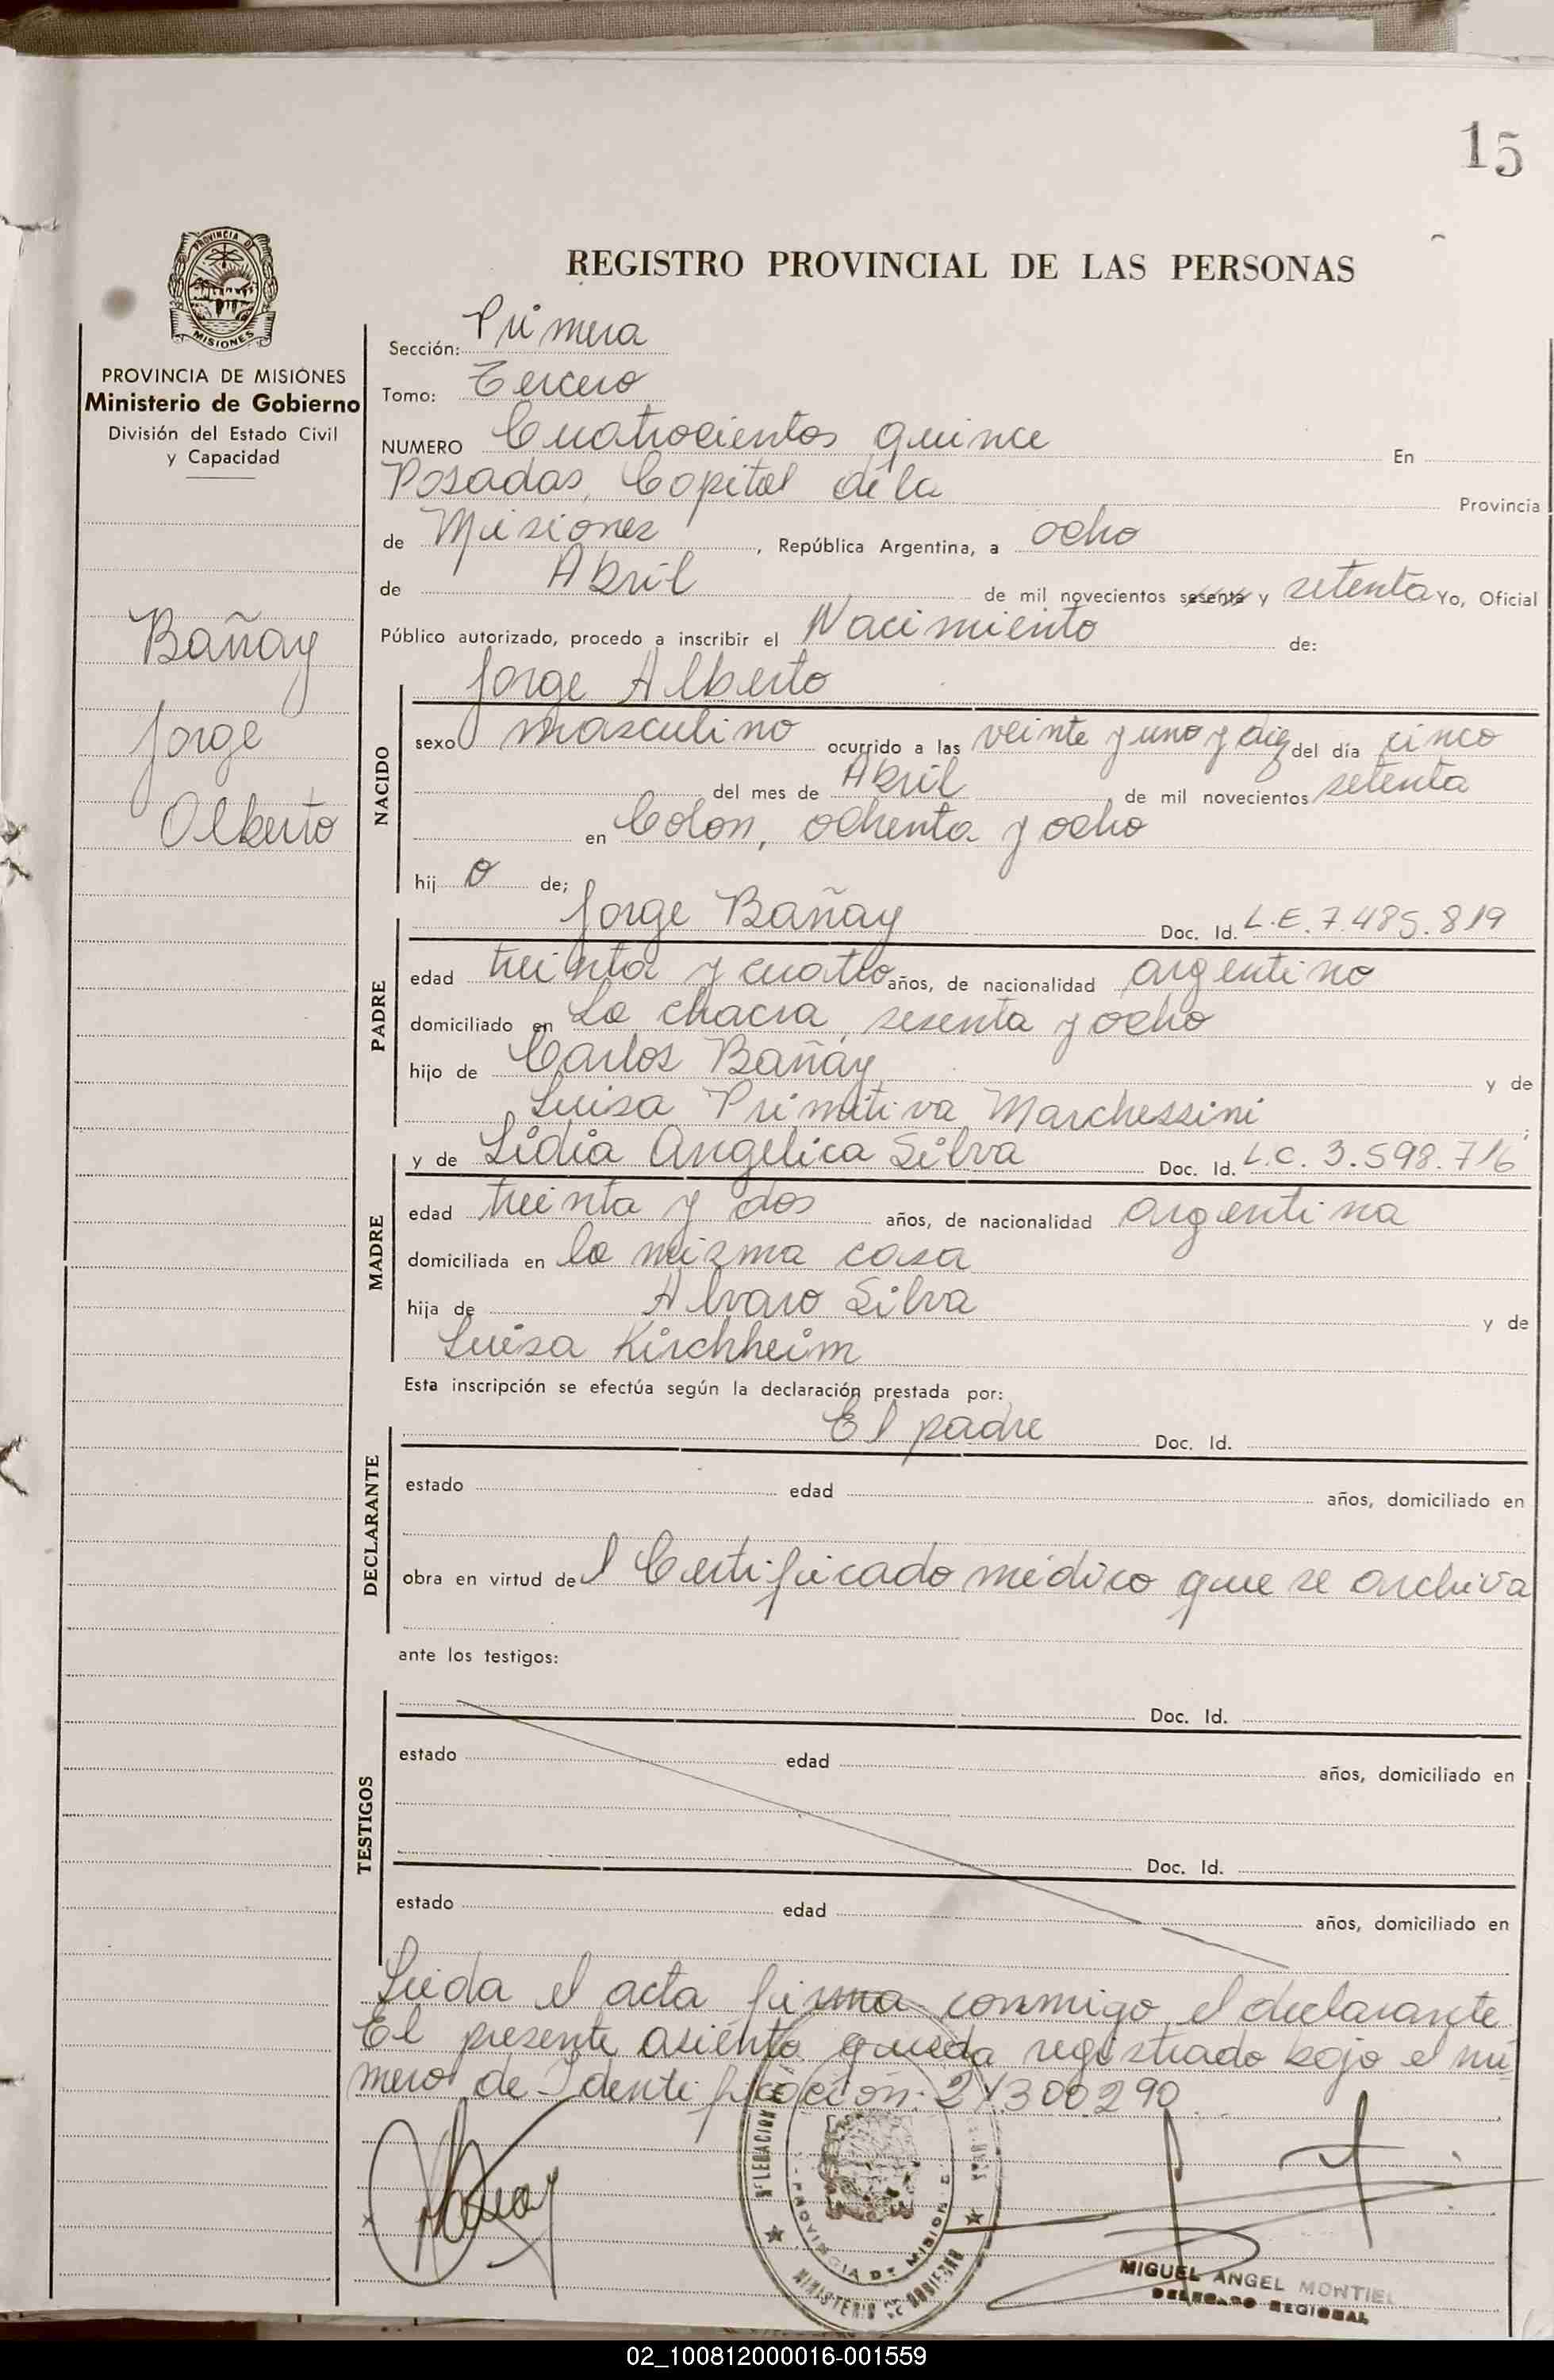 15
PROVINCIA DE MISIONES
REGISTRO PROVINCIAL DE LAS PERSONAS
PROVINCIA DE MISIONES
Ministerio de Gobierno
División del Estado Civil
y Capacidad
Bañay
Jorge
Alberto
Sección: Primera
Tomo: Tercero
NUMERO Cuatrocientos quince En
Posadas, Capital de la Provincia
de Misiones, República Argentina, a ocho
de Abril de mil novecientos sesenta y setenta Yo, Oficial
Público autorizado, procedo a inscribir el Nacimiento de:
Jorge Alberto
NACIDO
sexo masculino ocurrido a las veinte y uno y diez del día cinco
del mes de Abril de mil novecientos setenta
en Colon, ochenta y ocho
hij o de;
Jorge Bañay Doc. Id. L.E. 7.485.819
PADRE
edad treinta y cuatro años, de nacionalidad argentino
domiciliado en La chacra, sesenta y ocho
hijo de Carlos Bañay y de
Luisa Primitiva Marchessini ;
y de Lidia Angelica Silva Doc. Id. L.C. 3.598.716
MADRE
edad treinta y dos años, de nacionalidad argentina
domiciliada en la misma casa
hija de Alvaro Silva y de
Luisa Kirchheim
Esta inscripción se efectúa según la declaración prestada por:
El padre Doc. Id.
DECLARANTE
estado edad años, domiciliado en
obra en virtud de l Certificado médico que se archiva
ante los testigos:
Doc. Id.
TESTIGOS
estado edad años, domiciliado en
Doc. Id.
estado edad años, domiciliado en
Leida el acta firma conmigo el declarante
El presente asiento queda registrado bajo el nú
mero de Identificación: 21300290
DELEGACION
PROVINCIA DE MISIONES
MINISTERIO DE GOBIERNO
MIGUEL ANGEL MONTIEL
DELEGADO REGIONAL
02_100812000016-001559